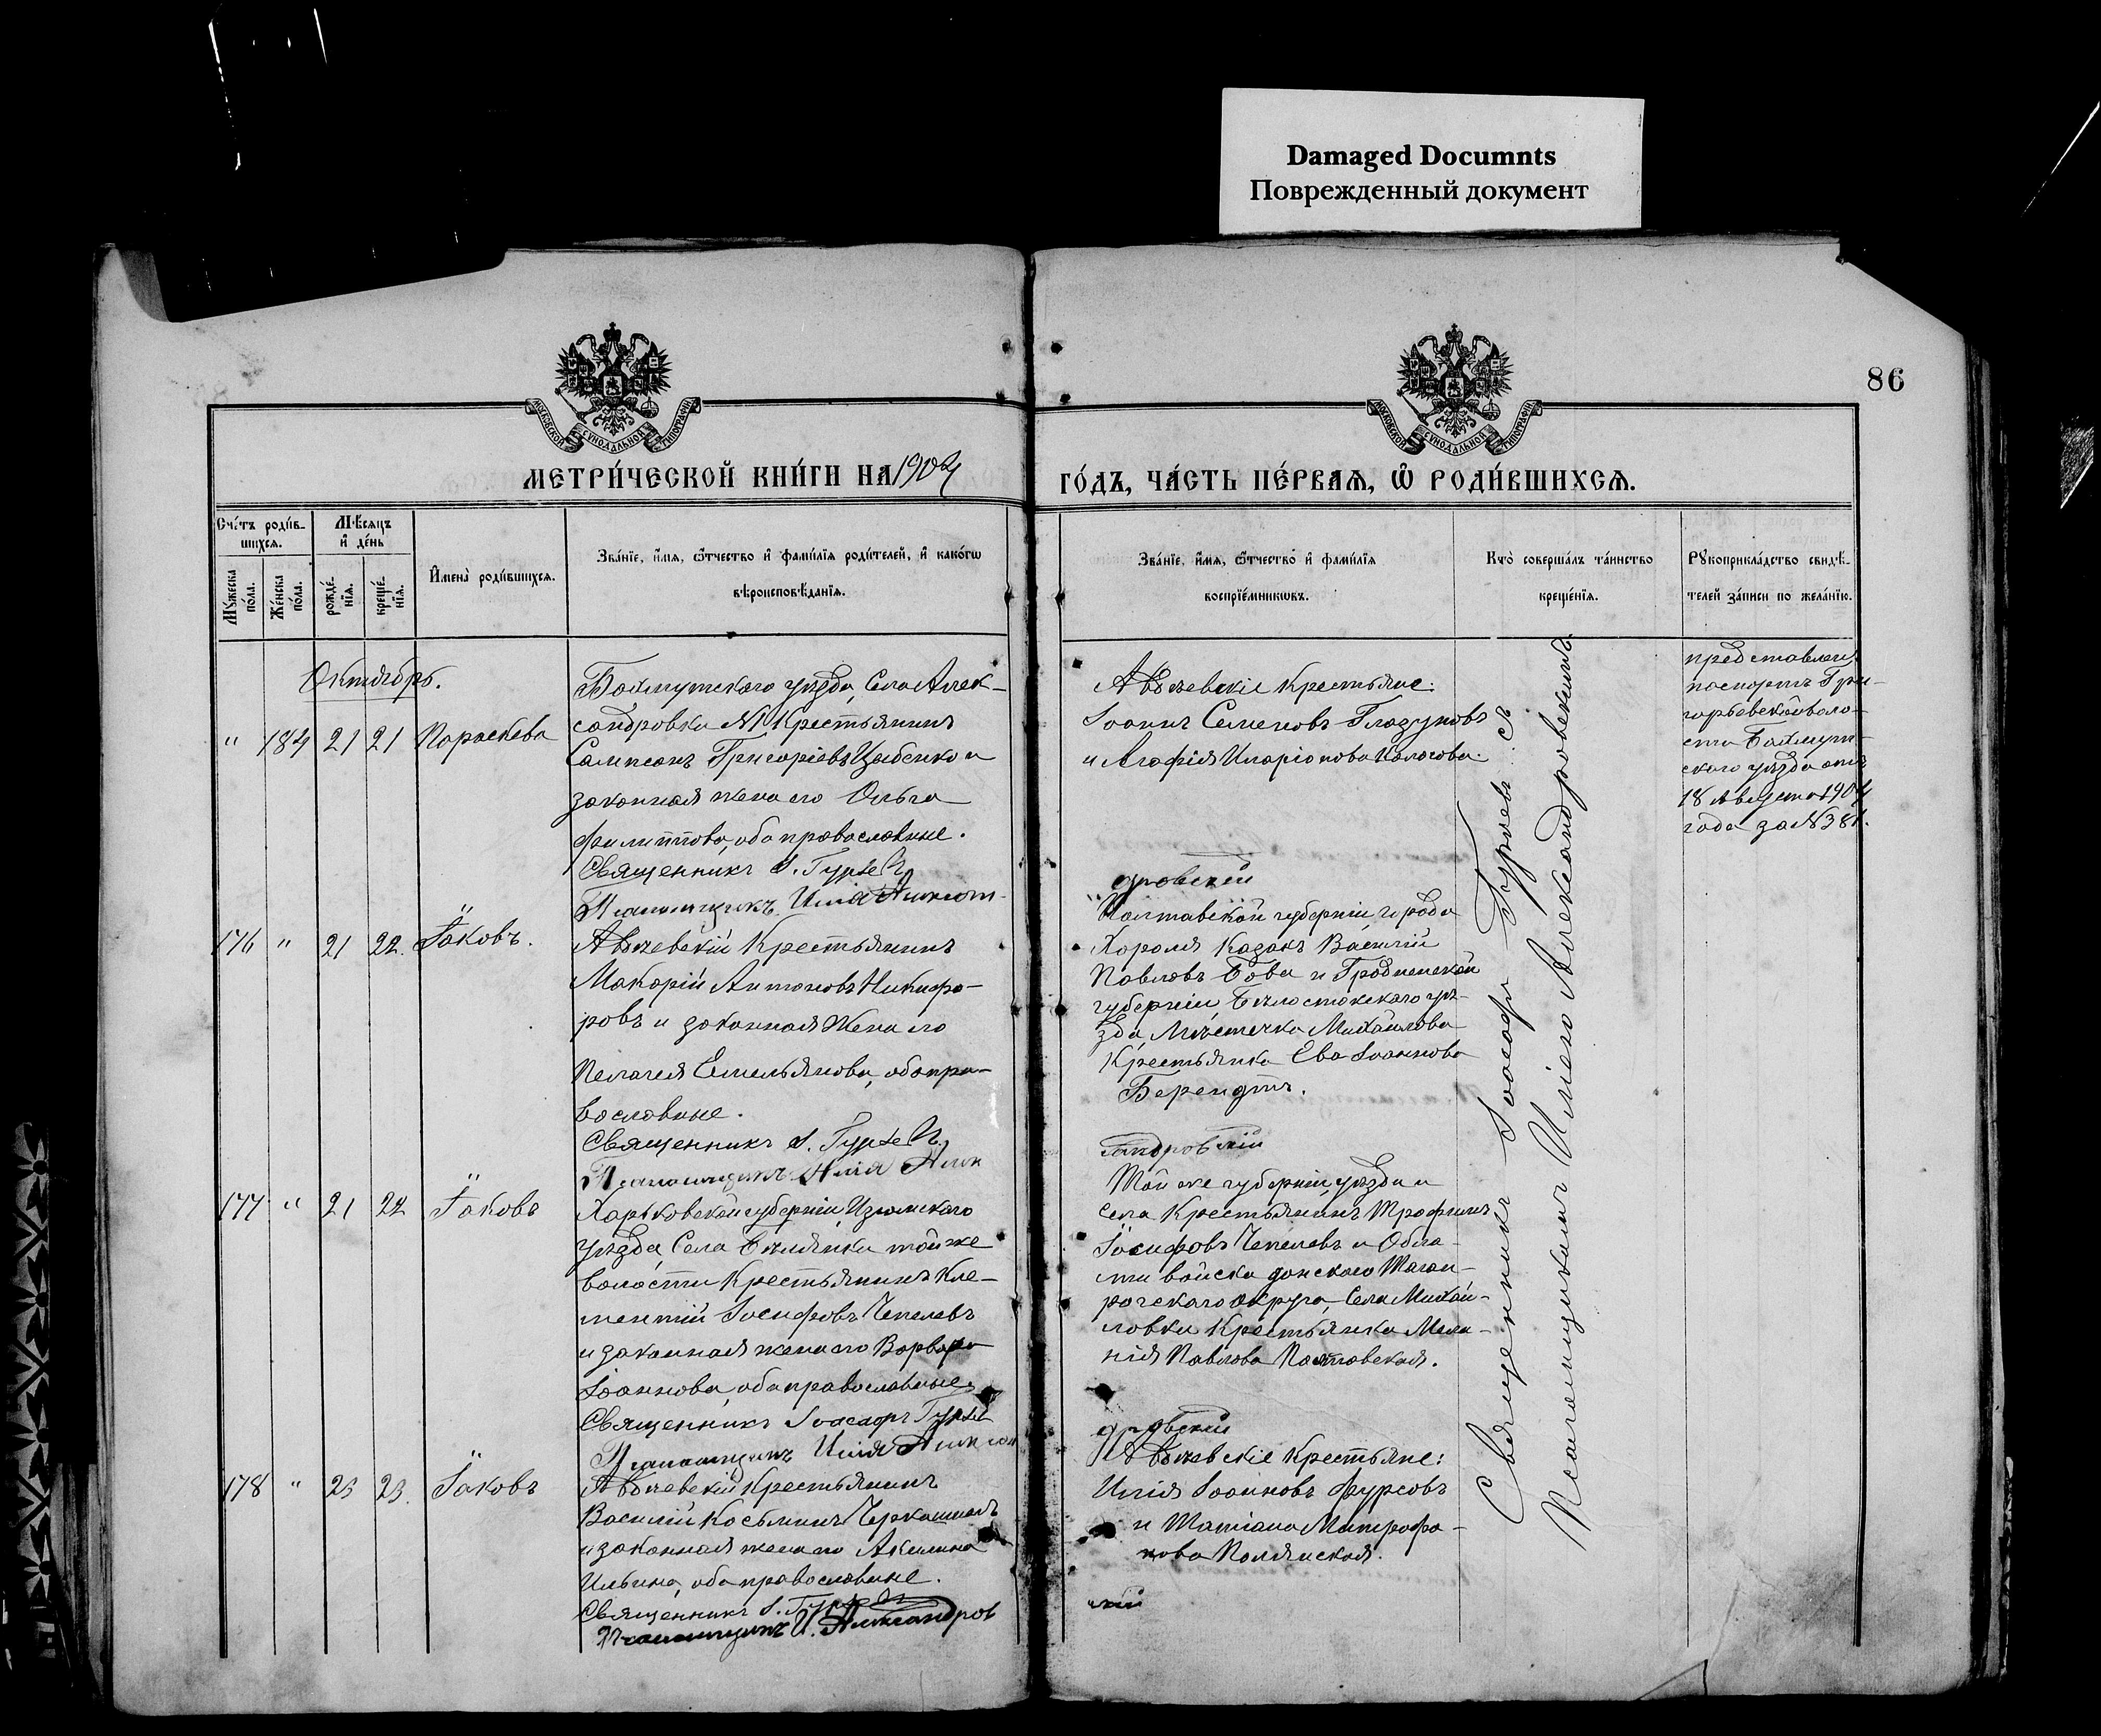 Damaged Documnts
Поврежденный документ
86
МОСКОВСКОЙ СѴНОДАЛЬНОЙ ТИПОГРАФІИ
МОСКОВСКОЙ СѴНОДАЛЬНОЙ ТИПОГРАФІИ
МЕТРИ́ЧЕСКОЙ КНИ́ГИ НА 1904
ГО́ДЪ, ЧА́СТЬ ПЕ́РВАѦ, Ѽ РОДИ́ВШИХСѦ.
Сче́тъ роди́в-
шихсѧ.
Мꙋ́жеска по́ла.
Же́нска по́ла.
Мѣ́сяцъ
и҆ де́нь
рожде́-
нїѧ.
креще́-
нїѧ.
И҆мена̀ роди́вшихсѧ.
Зва́нїе, и҆́мѧ, ѻ҆́тчество и҆ фами́лїѧ роди́телей, и҆ како́гѡ
вѣроисповѣ́данїѧ.
Зва́нїе, и҆́мѧ, ѻ҆́тчество и҆ фами́лїѧ
воспрїе́мникѡвъ.
Кто̀ соверша́лъ та́инство
креще́нїѧ.
Рꙋкоприкла́дство свидѣ́-
телей за́писи по жела́нїю.
Октябрь.
" 184 21 21 Параскева
Бахмутскаго уѣзда, Села Алек-
сандровки №1 Крестьянинъ
Сампсонъ Григоріевъ Цыбенко и
законная жена его Ольга
Филиппова, оба православные.
Священникъ І. Гурьевъ
Псаломщикъ Илія Алексан-
Авдѣевскіе Крестьяне:
Іоаннъ Семеновъ Глазуновъ
и Агафія Иларіонова
представленъ
паспортъ Гри-
горьевской воло-
сти Бахмут-
скаго уѣзда отъ
18 Августа 1904
года за №381.
176 " 21 22. Іаковъ.
Авдѣевскій Крестьянинъ
Макарій Антоновъ Никифо-
ровъ и законная жена его
Пелагея Емельянова, оба пра-
вославные.
Священникъ І. Гурьевъ
Псаломщикъ Илія Алек
дровскій
Полтавской губерніи города
Хороля Казакъ Василій
Павловъ Бова и Гродненской
губерніи, Бѣлостокскаго уѣ-
зда, Мѣстечка Михайлова
Крестьянка Ева Іоаннова
Берендтъ.
177 " 21 22 Іаковъ
Харьковской губерніи, Изюмскаго
уѣзда, Села Бѣлянки той же
волости Крестьянинъ Кле-
ментій Іосифовъ Чепелевъ
и законная жена его Варвара
Іоаннова, оба православные.
Священникъ Іоасафъ Гурьев
Псаломщикъ Илія Алексан
сандровскій
Той же губерніи, уѣзда и
Села Крестьянинъ Трофимъ
Іосифовъ Чепелевъ и Обла-
сти войска донскаго Таган-
рогскаго округа, Села Михай-
ловки Крестьянка Мела-
нія Павлова
178 " 23 23. Іаковъ
Авдѣевскій Крестьянинъ
Василій Косьминъ
и законная жена его Акилина
Ильина, оба православные.
Священникъ І. Гурьевъ
Псаломщикъ И. Александров
дровскій
Авдѣевскіе Крестьяне:
Илія Іоанновъ Фурсовъ
и Татіана Митрофа-
нова Полянская.
скій
Священникъ Іоасафъ Гурьевъ съ
Псаломщикомъ Иліею Александровскимъ